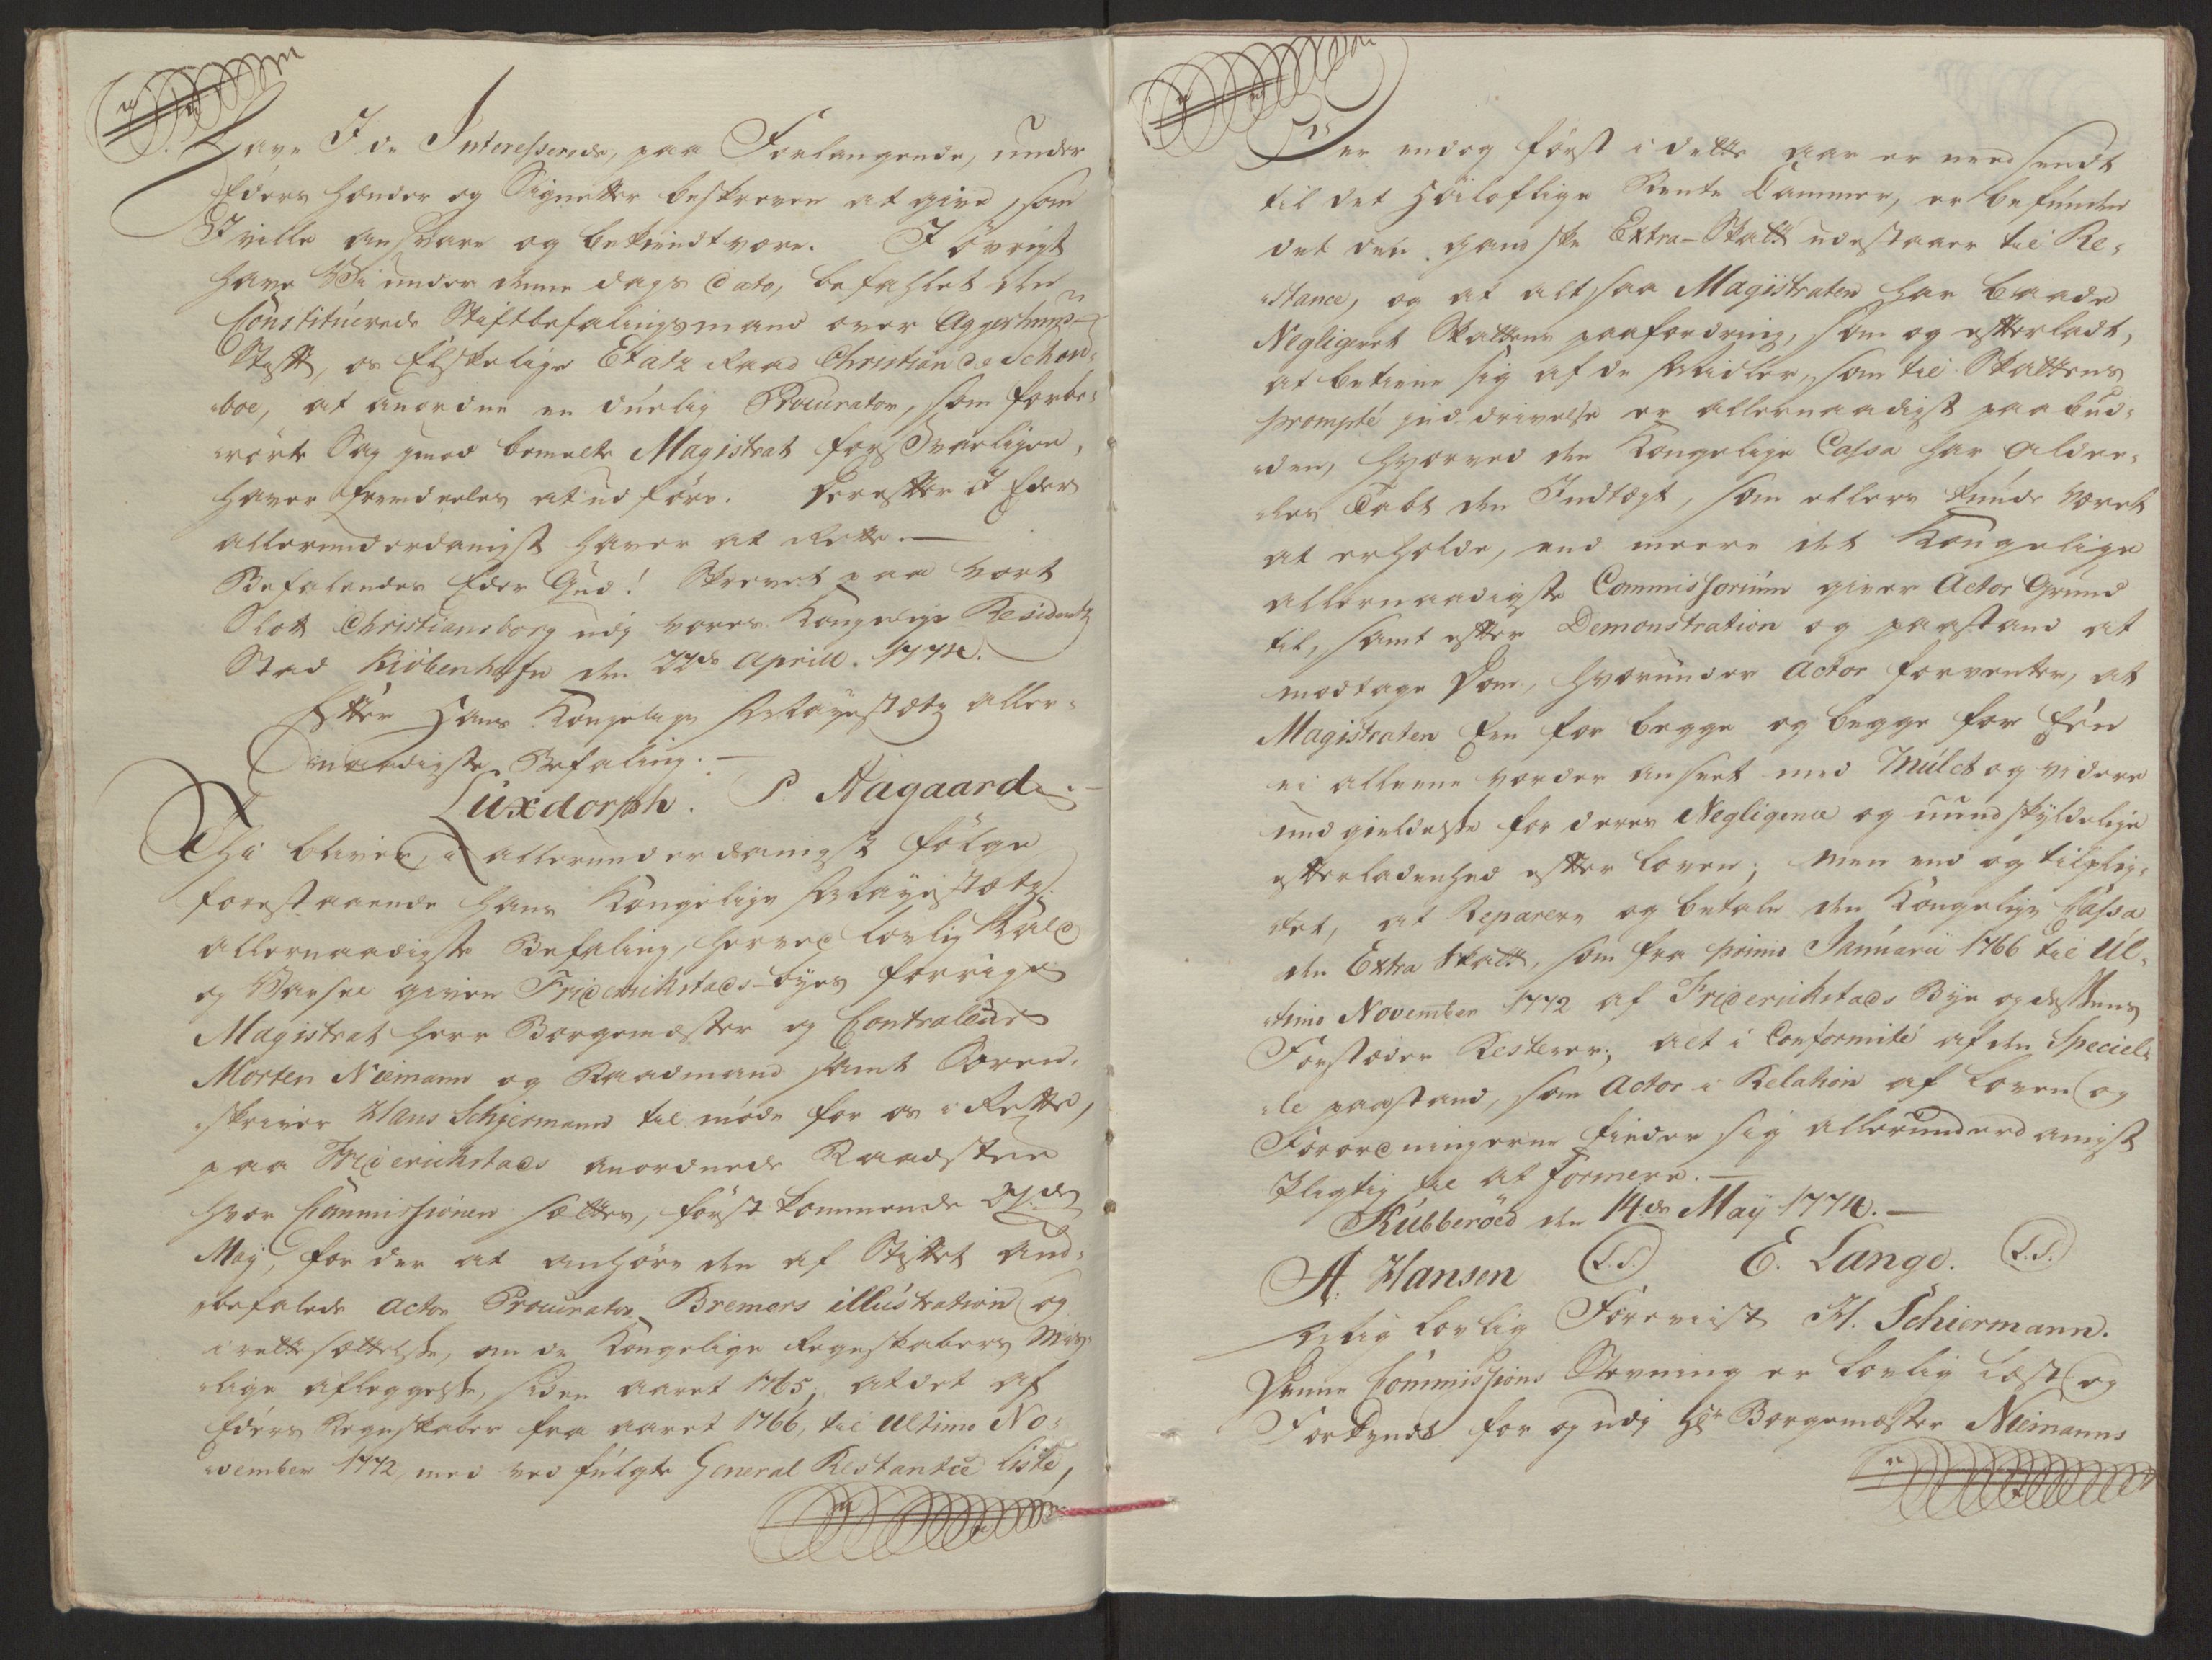 Have I de Interesserede, paa Forlangende, under
Eders Hænder og Signetter beskreven at give, som
I ville ansvare og bekiendt være. I øvrigt
have Vi under denne Dags Dato, befahlet den
Constituerede Stiftbefalingsmand over Aggershuus-
Stift, os Elskelige Etatz Raad Christian de Schou-
boe, at anordne en duelig Procurator, som forbe-
rørte Sag imod bemelte Magistrat forsvarligen,
haver fremdeeles at udføre. Derefter I Eder
allerunderdanigst haver at rette.
Befalendes Eder Gud! Skrevet paa Vort
Slott Christiansborg udj vores Kongelige Residentz
Stad Kiöbenhafn den 22de Aprill. 1774.
Efter Hans Kongelige Mayestætz aller-
naadigste Befaling.
Luxdorph. P. Aagaard.
Thi bliver, i allerunderdanigst følge
forestaaende Hans Kongelige Mayestætz
allernaadigste Befaling, herved lovlig Kald
og Varsel given Friderichstads-Byes forrige
Magistrat Herr Borgemester og Contraleur
Morten Niemann og Raadmand samt Soren-
skriver Hans Schjermann til møde for os i Rette,
paa Friderichstads anordnede Raadstue
hvor Commissionen sættes, først kommende 27de
May, for der at anhøre den af Stiftet an-
befalede Actor Procurator Bremers illustration og
irettesættelse, om de Kongelige Regnskabers Mis-
lige aflæggelse, siden aaret 1765, at det af
Eders Regnskaber fra aaret 1766, til Ultimo No-
vember 1772, med ved fulgte General Restantce liste,
der endog først i dette aar er nedsendt
til det Høiloflige Rente Cammer, er befunden
det den gandske Extra-Skatt udestaaer til Re-
stance, og at altsaa Magistraten har baade
Negligeret Skattens paafordring, som og efterladt,
at betiene sig af de Midler, som til Skattens
prompte inddrivelse er allernaadigst paabud-
den, hvorved den Kongelige Cassa har alde-
les tabt den Indtægt, som ellers kunde været
at erholde, end meere det Kongelige
allernaadigste Commissorium giver Actor Grund
til, samt efter Demonstration og paastand at
modtage Dom, hvorunder Actor forventer, at
Magistraten Een for begge og begge for Een
ei alleene vorder anseet med Mulct og videre
undgieldelse for deres Negligence og uundskyldelige
efterladenhed efter loven; men end og tilplig-
tet, at Reparere og betale den Kongelige Cassa
den Extra Skatt, som fra primo Januarii 1766 til Ul-
timo November 1772 af Friderichstads Bye og dessens
Forstæder Resterer; alt i Conformité af den Speciel-
le paastand, som Actor i Relation af loven og
Forordningerne finder sig allerunderdanigst
pligtig til at formere.
Kubberöed den 14de May 1774.
A. Hansen (L.S.) E. Lange. (L.S.)
Mig lovlig Foreviist H. Schiermann.
Denne Commissions Stevning er lovlig læst og
Forkyndt for og udj Hr Borgemester Niemanns